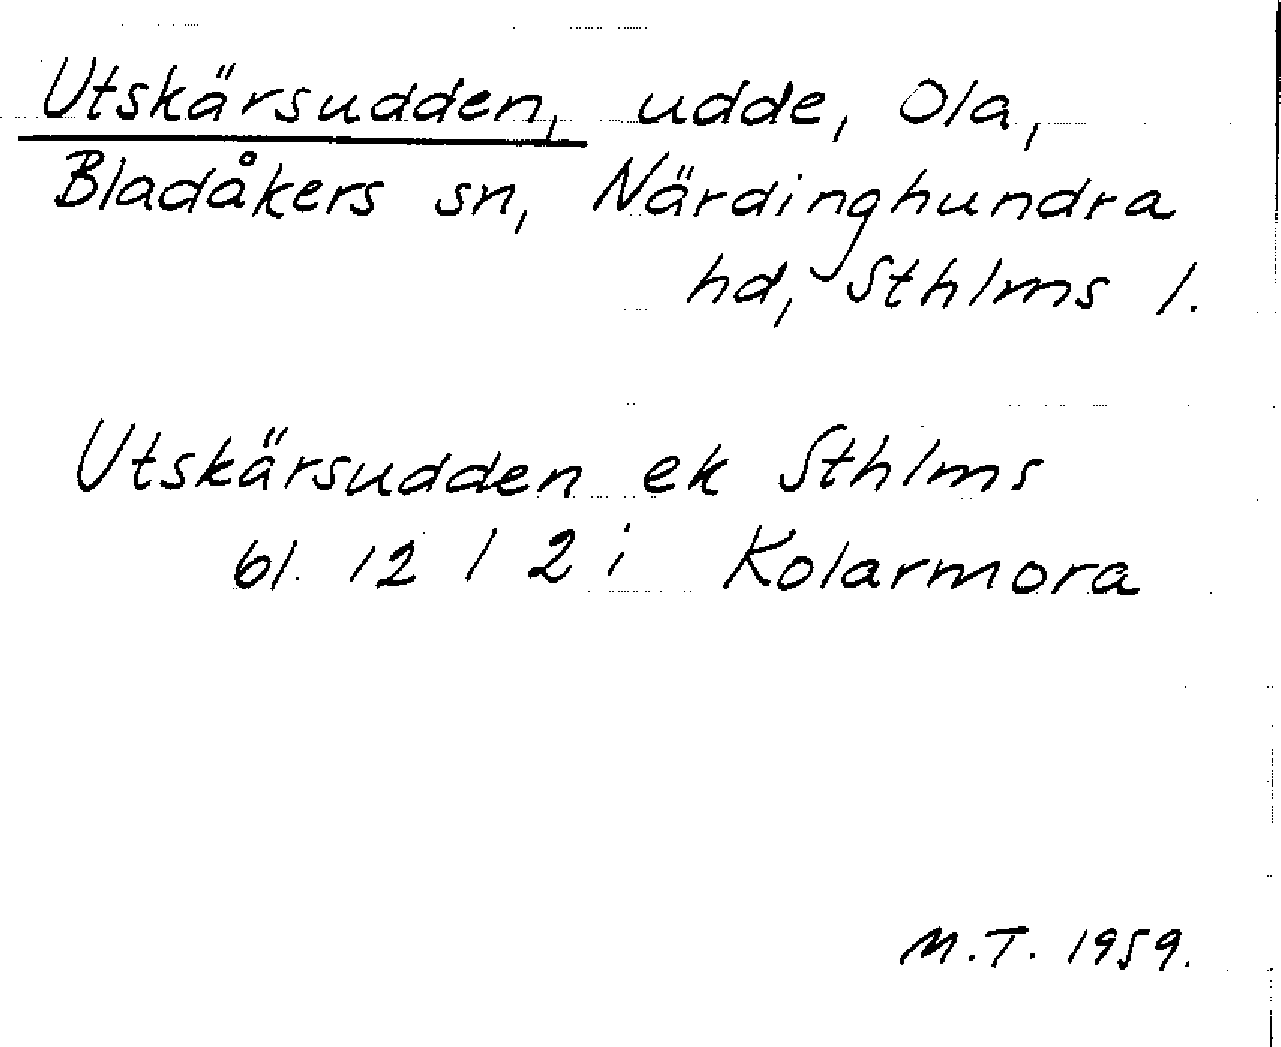 Utskärsudden, udde, Ola,
Bladåkers sn, Närdinghundra
hd, Sthlms l.
Utskärsudden ek Sthlms
bl. 12 1 2 i Kolarmora
M.T. 1959.